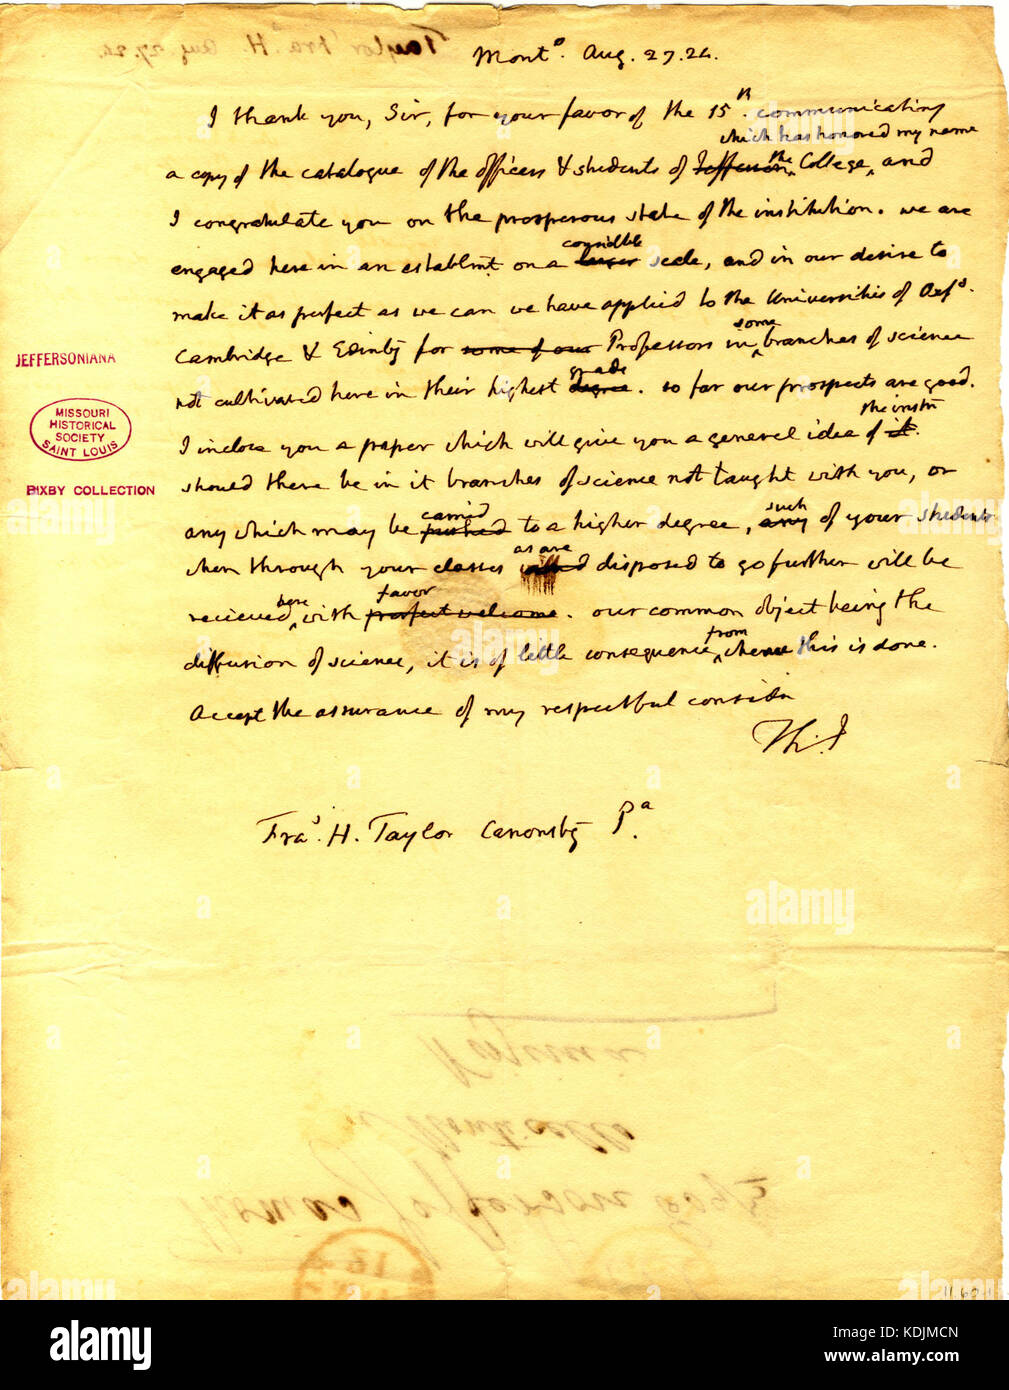 Monto. Aug. 27. 24.
I thank you, Sir, for your favor of the 15th. communicating
which has honored my name
a copy of the catalogue of the officers & students of Jefferson the College, and
I congratulate you on the prosperous state of the institution. we are
considble
engaged here in an establmt on a larger scale, and in our desire to
make it as perfect as we can we have applied to the Universities of Oxfd.
some
Cambridge & Edinbg for some of our Professors in branches of science
grade
not cultivated here in their highest degree. so far our prospects are good.
the instn
I inclose you a paper which will give you a general idea of it.
should there be in it branches of science not taught with you, or
carried such
any which may be pushed to a higher degree, any of your students
as are
when through your classes disposed to go further will be
here favor
recieved with perfect welcome. our common object being the
from
diffusion of science, it is of little consequence whence this is done.
Accept the assurance of my respectful considn
Th: J
Fras. H. Taylor Canonsbg Pa.
JEFFERSONIANA
MISSOURI
HISTORICAL
SOCIETY
SAINT LOUIS
BIXBY COLLECTION
Taylor Fras. H. Aug 27. 24.
Virginia
Monticello
Thomas Jefferson Esqr
alamy
Image ID: KDJMCN
www.alamy.com